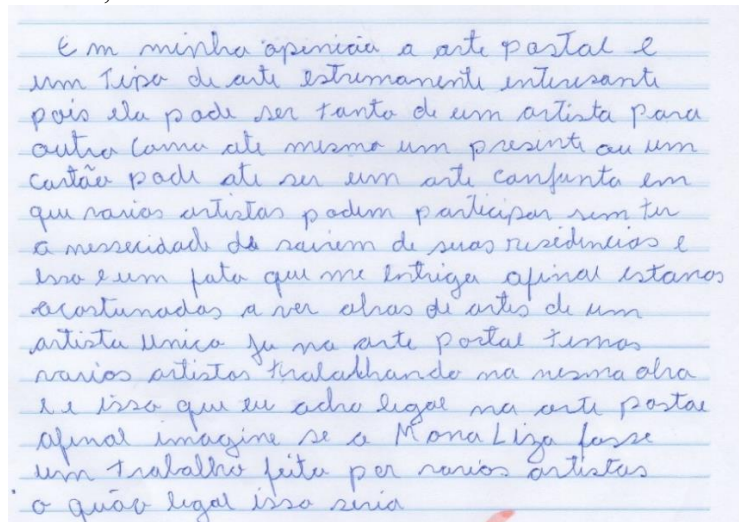 Em minha openicia a arte postal e
um tipo de arte estrumanente enteresante
pois ela pode ser tanto de um artista para
outro como ate mesmo um presente ou um
cartão pode ate ser um arte conjunta em
que varios artistas podem participar sem ter
a nessecidade de sairem de suas residencias e
isso e um fato que me intriga afinal estanos
acostunados a ver obras de artes de um
artista unico ja na arte postal temos
varios artistas trabalhando na mesma obra
e e isso que eu acho legal na arte postal
afinal imagine se a Mona Liza fosse
um trabalho feito por varios artistas
o quão legal isso seria